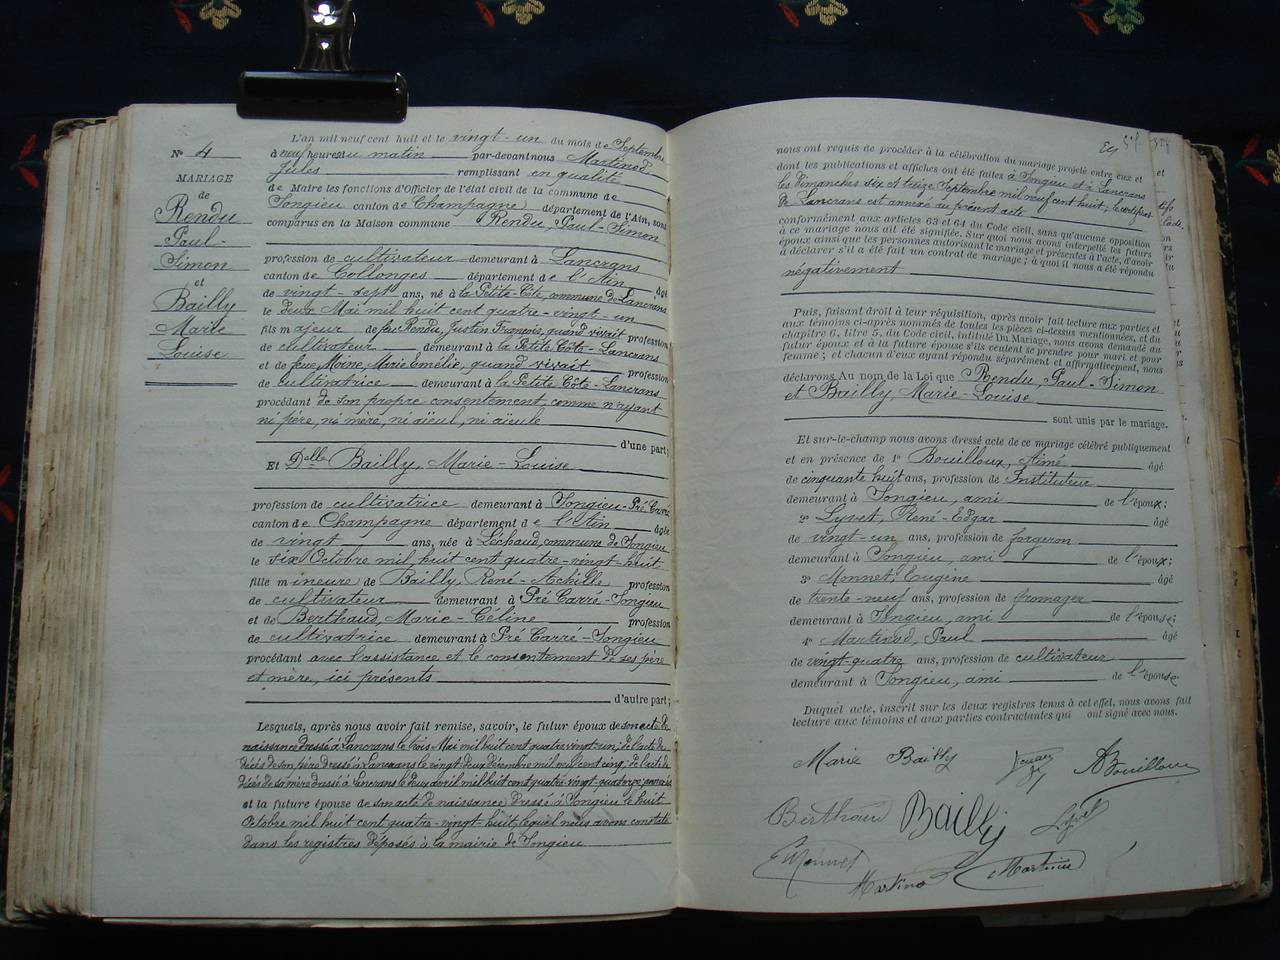 N° 4
MARIAGE
de
Rendu
Paul-
Simon
et
Bailly
Marie
Louise
L'an mil neuf cent huit et le vingt-un du mois de Septembre
à neuf heures du matin par-devant nous Martinod
Jules remplissant en qualité
de Maire les fonctions d'Officier de l'état civil de la commune de
Songieu canton de Champagne département de l'Ain, sont
comparus en la Maison commune Rendu, Paul-Simon
profession de cultivateur demeurant à Lancrans
canton de Collonges département de l'Ain âgé
de vingt-sept ans, né à la Petite-Côte, commune de Lancrans
le deux Mai mil huit cent quatre-vingt-un
fils majeur de feu Rendu, Justin François, quand vivait profession
de cultivateur demeurant à la Petite Côte-Lancrans
et de feue Moine, Marie Emélie, quand vivait profession
de cultivatrice demeurant à la Petite Côte-Lancrans
procédant de son propre consentement, comme n'ayant
ni père, ni mère, ni aïeul, ni aïeule
d'une part;
Et Delle Bailly, Marie-Louise
profession de cultivatrice demeurant à Songieu-Pré Carré
canton de Champagne département de l'Ain âgée
de vingt ans, née à Léchaud, commune de Songieu
le six Octobre mil huit cent quatre-vingt-huit
fille mineure de Bailly, René-Achille profession
de cultivateur demeurant à Pré Carré-Songieu
et de Berthaud, Marie-Céline profession
de cultivatrice demeurant à Pré Carré-Songieu
procédant avec l'assistance et le consentement de ses père
et mère, ici présents
d'autre part;
Lesquels, après nous avoir fait remise, savoir, le futur époux de son acte de
naissance dressé à Lancrans le trois Mai mil huit cent quatre vingt-un; de l'acte de
décès de son père dressé à Lancrans le vingt deux Décembre mil neuf cent cinq; de l'acte de
décès de sa mère dressé à Lancrans le deux avril mil huit cent quatre-vingt-quatorze
et la future épouse de son acte de naissance dressé à Songieu le huit
Octobre mil huit cent quatre-vingt-huit, lequel nous avons constaté
dans les registres déposés à la mairie de Songieu
nous ont requis de procéder à la célébration du mariage projeté entre eux et
dont les publications et affiches ont été faites à Songieu et à Lancrans
les Dimanches six et treize Septembre mil neuf cent huit; le certificat
de Lancrans est annexé au présent acte
conformément aux articles 63 et 64 du Code civil, sans qu'aucune opposition
à ce mariage nous ait été signifiée. Sur quoi nous avons interpellé les futurs
époux ainsi que les personnes autorisant le mariage et présentes à l'acte, d'avoir
à déclarer s'il a été fait un contrat de mariage; à quoi il nous a été répondu
négativement
Puis, faisant droit à leur réquisition, après avoir fait lecture aux parties et
aux témoins ci-après nommés de toutes les pièces ci-dessus mentionnées, et du
chapitre 6, titre 5, du Code civil, intitulé Du Mariage, nous avons demandé au
futur époux et à la future épouse s'ils veulent se prendre pour mari et pour
femme; et chacun d'eux ayant répondu séparément et affirmativement, nous
déclarons Au nom de la Loi que Rendu, Paul-Simon
et Bailly, Marie-Louise
sont unis par le mariage.
Et sur-le-champ nous avons dressé acte de ce mariage célébré publiquement
et en présence de 1° Bouilloux, Aimé âgé
de cinquante huit ans, profession de Instituteur
demeurant à Songieu, ami de l'époux;
2° Lyvet, René-Edgar âgé
de vingt-un ans, profession de forgeron
demeurant à Songieu, ami de l'époux;
3° Monnet, Eugène âgé
de trente-neuf ans, profession de fromager
demeurant à Songieu, ami de l'épouse;
4° Martinod, Paul âgé
de vingt-quatre ans, profession de cultivateur
demeurant à Songieu, ami de l'épouse.
Duquel acte, inscrit sur les deux registres tenus à cet effet, nous avons fait
lecture aux témoins et aux parties contractantes qui ont signé avec nous.
Marie Bailly
ABouilloux
Berthaud Bailly Lyvet
EMonnet
Martinod Martinod